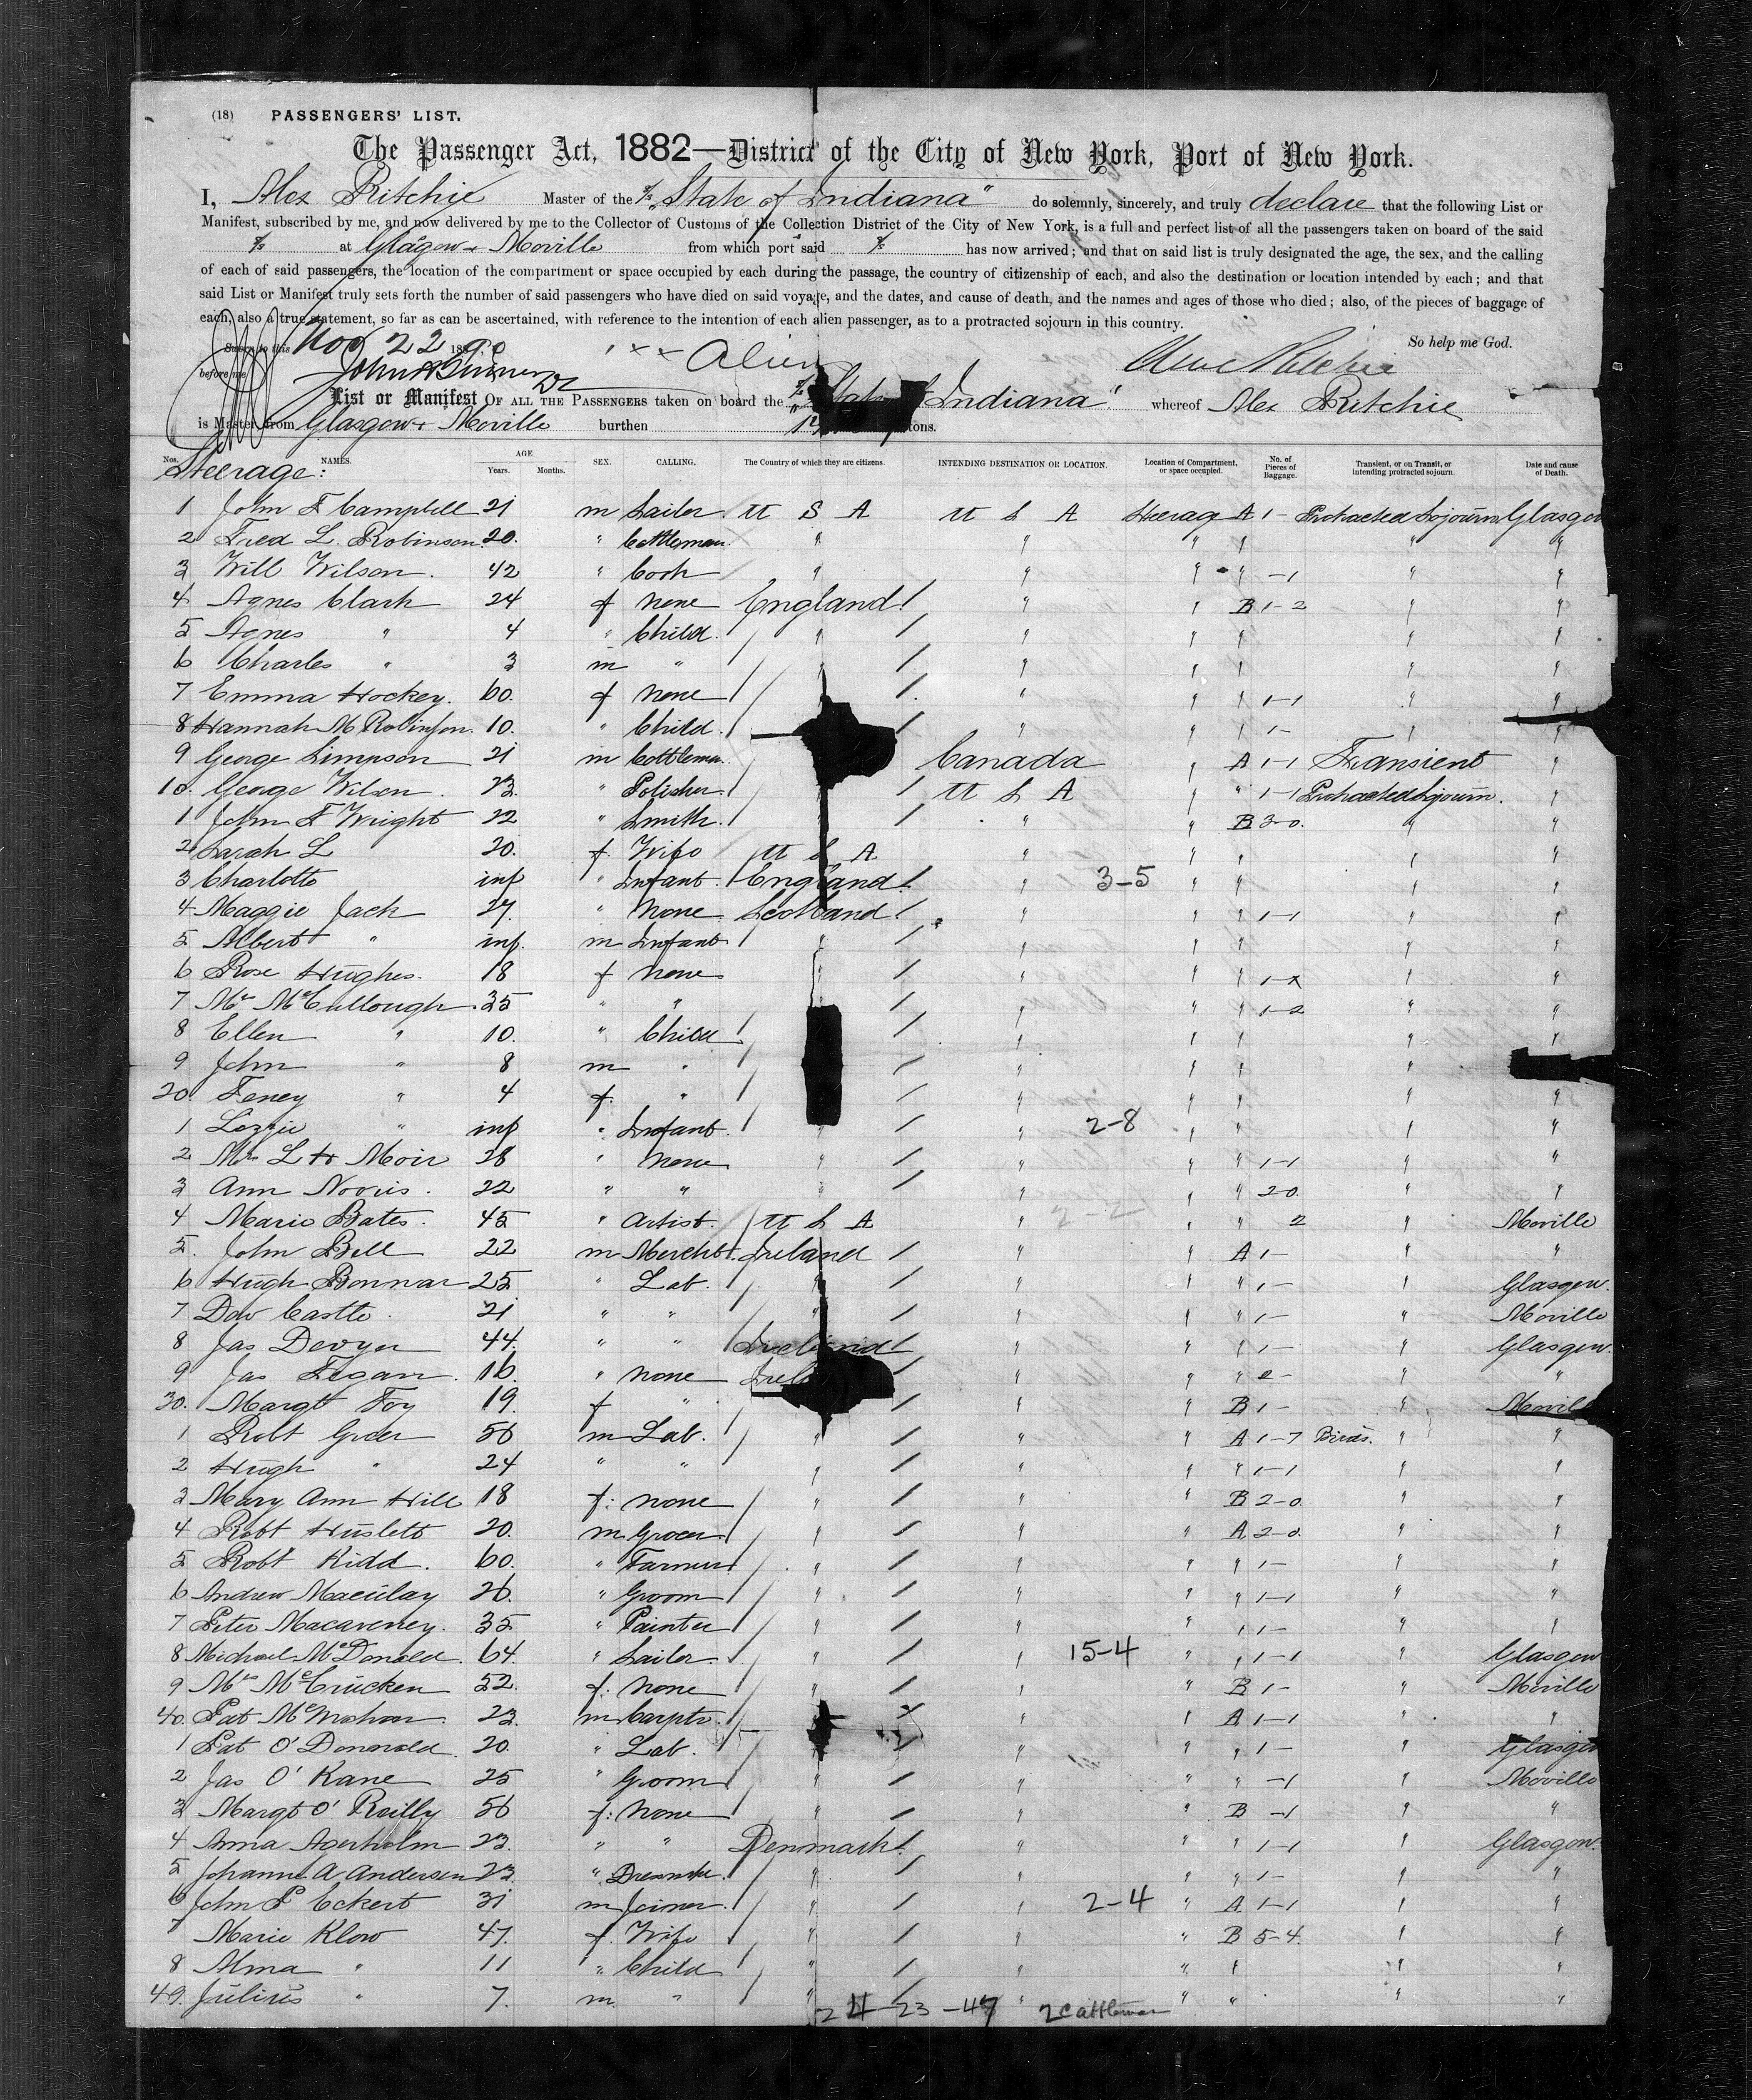 (18) PASSENGERS' LIST.
The Passenger Act, 1882—District of the City of New York, Port of New York.
I, Alex Ritchie Master of the S/s "State of Indiana" do solemnly, sincerely, and truly declare that the following List or
Manifest, subscribed by me, and now delivered by me to the Collector of Customs of the Collection District of the City of New York, is a full and perfect list of all the passengers taken on board of the said
S/s at Glasgow & Moville from which port said S/s has now arrived; and that on said list is truly designated the age, the sex, and the calling
of each of said passengers, the location of the compartment or space occupied by each during the passage, the country of citizenship of each, and also the destination or location intended by each; and that
said List or Manifest truly sets forth the number of said passengers who have died on said voyage, and the dates, and cause of death, and the names and ages of those who died; also, of the pieces of baggage of
each, also a true statement, so far as can be ascertained, with reference to the intention of each alien passenger, as to a protracted sojourn in this country.
So help me God.
Sworn to this Nov 22 1890 × × Alien Alex Ritchie
before me
List or Manifest OF ALL THE PASSENGERS taken on board the S/s "State of Indiana" whereof Alex Ritchie
is Master, from Glasgow & Moville burthen tons.
Nos. NAMES. AGE Years. Months. SEX. CALLING. The Country of which they are citizens. INTENDING DESTINATION OR LOCATION. Location of Compartment, or space occupied. No. of Pieces of Baggage. Transient, or on Transit, or intending protracted sojourn. Date and cause of Death.
Steerage:
1 John F Campbell 21 m Sailor U S A U S A Steerage A 1- Protracted Sojourn Glasgow
2 Fred L. Robinson 20. " Cattleman " " " " " "
3 Will Wilson. 42 " Cook " " " " -1 " "
4 Agnes Clark 24 f none England / " " B 1-2 " "
5 Agnes " 4 " Child. / " / " " " " "
6 Charles " 3 m " / " / " " " " "
7 Emma Hockey. 60. f none / / " " " 1-1 " "
8 Hannah M Robinson 10. " Child / / " " " 1- " "
9 George Simpson 21 m Cattleman Canada " A 1-1 Transient "
10. George Wilson. 23. " Polisher / / U S A " " 1-1 Protracted Sojourn. "
1 John F Wright 22 " Smith. / / " " B 3-0. " "
2 Sarah L 20. f. Wife U S A " " " " "
3 Charlotte inf " Infant. England / " 3-5 " " " "
4 Maggie Jack 27. " None Scotland / " " " 1-1 " "
5 Albert " inf. m Infant / " / " " " " "
6 Rose Hughes. 18 f none " / " " " " "
7 Mrs McCullough. 35 " " / " " " 1-2 " "
8 Ellen " 10. " Child / / " " " " "
9 John " 8 m " / / " " " "
20. Feney " 4 f. " / / " " " " "
1 Lizzie " inf " Infant. " / " 2-8 " " " "
2 Mrs L H Moir 28 " none " / " " " 1-1 " "
3 Ann Norris. 22 " " " / " " " 20. " "
4 Marie Bates. 45 " Artist. / U S A " " " 2 " Moville
5. John Bell 22 m Mercht. Ireland / " " A 1- " "
6 Hugh Bonnar 25 " Lab. / " / " " " 1- " Glasgow.
7 Dav Castle. 21 " " " / " " " 1- " Moville
8 Jas Devyer 44. " " Ireland / " " " 1- " Glasgow.
9 Jas Fegan. 16. " none / " " " 2- " "
30. Margt Foy 19. f " / / " " B 1- " Moville
1 Robt Greer 56 m Lab. / " / " " A 1-7 Birds. " "
2 Hugh " 24 " " " / " " " 1-1 " "
3 Mary Ann Hill 18 f: none / " / " " B 2-0. " "
4 Robt 20. m Grocer / " / " " A 2-0. " "
5 Robt Kidd. 60. " Farmer / " / " " " 1- " "
6 Andrew Macūlay 26. " Groom / " / " " " 1-1 " "
7 Peter Macaveney. 35 " Painter / " / " " " 1- " "
8 Michael McDonald. 64. " Sailor. / " / " 15-4 " " 1-1 " Glasgow
9 Mrs McCrūcken 52. f. none / " / " " B 1- " Moville
40. Pat McMahon. 23. m Carptr. / " " A 1-1 " "
1 Pat O'Donnold. 20. " Lab. / / " " " 1- " Glasgow
2 Jas O'Kane 25 " Groom / " / " " " -1 " Moville
3 Margt O'Reilly 56 f: none / " / " " B -1 " "
4 Anna Agerholm 23. " " Denmark / " " " 1-1 " Glasgow.
5 Johanne A Andersen 23. " Dressmkr. / " / " " " 1- " "
6 John P Eckert 31 m Joiner. / " / " 2-4 " A 1-1 " "
7 Marie Klow 47. f. Wife / " / " " B 5-4. " "
8 Alma " 11 " Child / " / " " " " "
49. Jūlius " 7. m. " / " / " " " " "
24 23 -47 2 Cattlemen